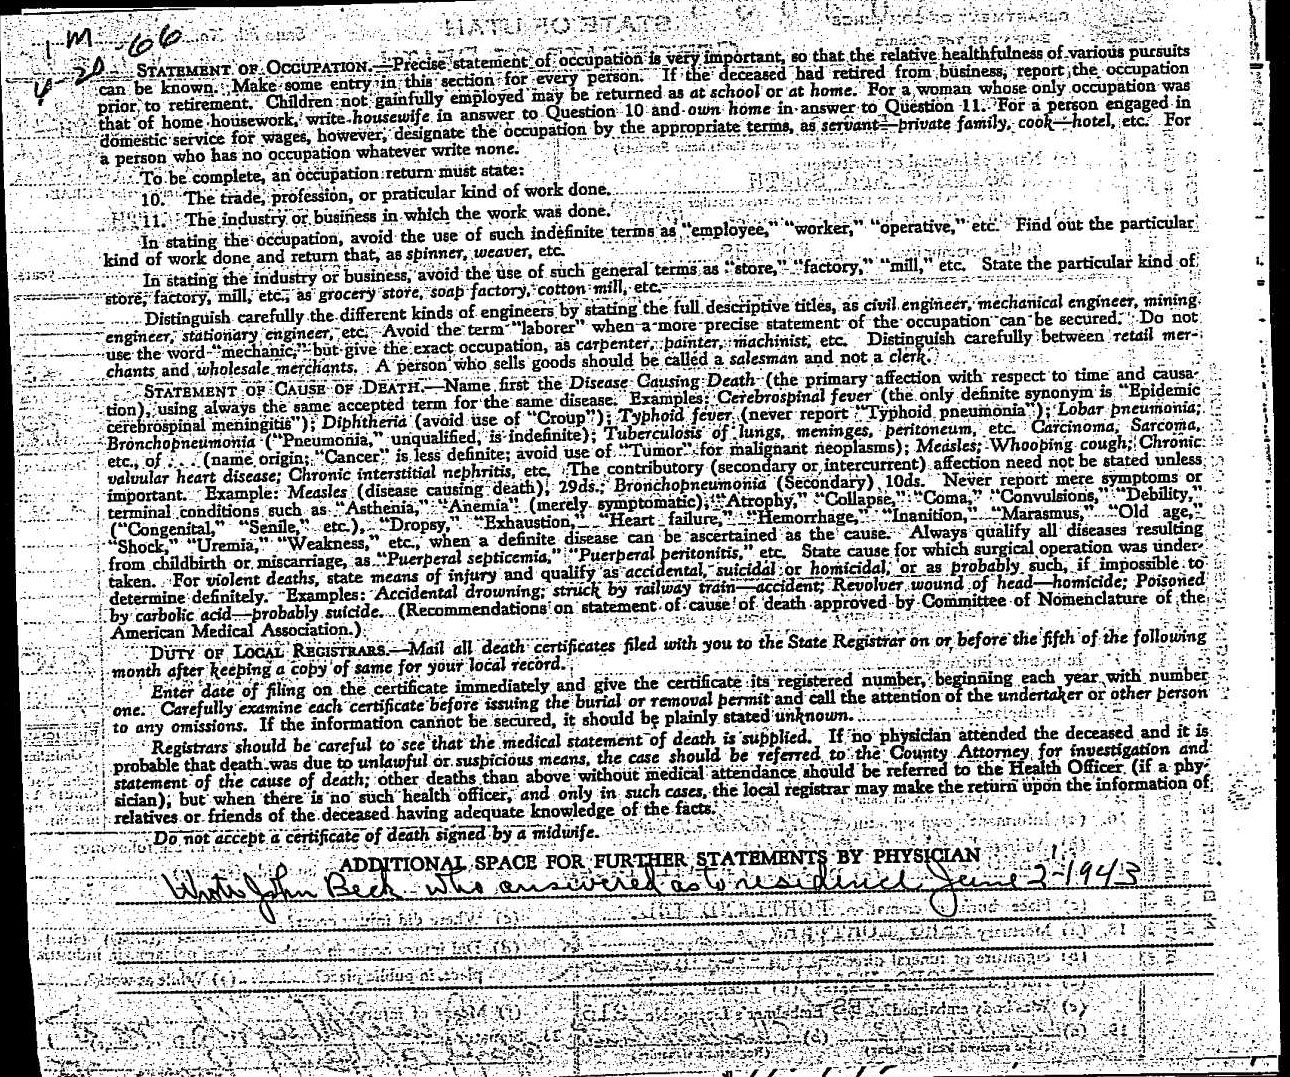 1-M-66
4-20
STATEMENT OF OCCUPATION.—Precise statement of occupation is very important, so that the relative healthfulness of various pursuits
can be known. Make some entry in this section for every person. If the deceased had retired from business, report the occupation
prior to retirement. Children not gainfully employed may be returned as at school or at home. For a woman whose only occupation was
that of home housework, write housewife in answer to Question 10 and own home in answer to Question 11. For a person engaged in
domestic service for wages, however, designate the occupation by the appropriate terms, as servant—private family, cook—hotel, etc. For
a person who has no occupation whatever write none.
To be complete, an occupation return must state:
10. The trade, profession, or praticular kind of work done.
11. The industry or business in which the work was done.
In stating the occupation, avoid the use of such indefinite terms as "employee," "worker," "operative," etc. Find out the particular
kind of work done and return that, as spinner, weaver, etc.
In stating the industry or business, avoid the use of such general terms as "store," "factory," "mill," etc. State the particular kind of
store, factory, mill, etc., as grocery store, soap factory, cotton mill, etc.
Distinguish carefully the different kinds of engineers by stating the full descriptive titles, as civil engineer, mechanical engineer, mining
engineer, stationary engineer, etc. Avoid the term "laborer" when a more precise statement of the occupation can be secured. Do not
use the word "mechanic," but give the exact occupation, as carpenter, painter, machinist, etc. Distinguish carefully between retail mer-
chants and wholesale merchants. A person who sells goods should be called a salesman and not a clerk.
STATEMENT OF CAUSE OF DEATH.—Name first the Disease Causing Death (the primary affection with respect to time and causa-
tion), using always the same accepted term for the same disease. Examples: Cerebrospinal fever (the only definite synonym is "Epidemic
cerebrospinal meningitis"); Diphtheria (avoid use of "Croup"); Typhoid fever (never report "Typhoid pneumonia"); Lobar pneumonia;
Bronchopneumonia ("Pneumonia," unqualified, is indefinite); Tuberculosis of lungs, meninges, peritoneum, etc. Carcinoma, Sarcoma,
etc., of . . . (name origin; "Cancer" is less definite; avoid use of "Tumor" for malignant neoplasms); Measles; Whooping cough; Chronic
valvular heart disease; Chronic interstitial nephritis, etc. The contributory (secondary or intercurrent) affection need not be stated unless
important. Example: Measles (disease causing death), 29ds.; Bronchopneumonia (Secondary) 10ds. Never report mere symptoms or
terminal conditions such as "Asthenia," "Anemia" (merely symptomatic), "Atrophy," "Collapse," "Coma," "Convulsions," "Debility,"
("Congenital," "Senile," etc.), "Dropsy," "Exhaustion," "Heart failure," "Hemorrhage," "Inanition," "Marasmus," "Old age,"
"Shock," "Uremia," "Weakness," etc., when a definite disease can be ascertained as the cause. Always qualify all diseases resulting
from childbirth or miscarriage, as "Puerperal septicemia," "Puerperal peritonitis," etc. State cause for which surgical operation was under-
taken. For violent deaths, state means of injury and qualify as accidental, suicidal or homicidal, or as probably such, if impossible to
determine definitely. Examples: Accidental drowning; struck by railway train—accident; Revolver wound of head—homicide; Poisoned
by carbolic acid—probably suicide. (Recommendations on statement of cause of death approved by Committee of Nomenclature of the
American Medical Association.)
DUTY OF LOCAL REGISTRARS.—Mail all death certificates filed with you to the State Registrar on or before the fifth of the following
month after keeping a copy of same for your local record.
Enter date of filing on the certificate immediately and give the certificate its registered number, beginning each year with number
one. Carefully examine each certificate before issuing the burial or removal permit and call the attention of the undertaker or other person
to any omissions. If the information cannot be secured, it should be plainly stated unknown.
Registrars should be careful to see that the medical statement of death is supplied. If no physician attended the deceased and it is
probable that death was due to unlawful or suspicious means, the case should be referred to the County Attorney for investigation and
statement of the cause of death; other deaths than above without medical attendance should be referred to the Health Officer (if a phy-
sician), but when there is no such health officer, and only in such cases, the local registrar may make the return upon the information of
relatives or friends of the deceased having adequate knowledge of the facts.
Do not accept a certificate of death signed by a midwife.
ADDITIONAL SPACE FOR FURTHER STATEMENTS BY PHYSICIAN
Wrote John Beck who answered as to residence June 2-1943